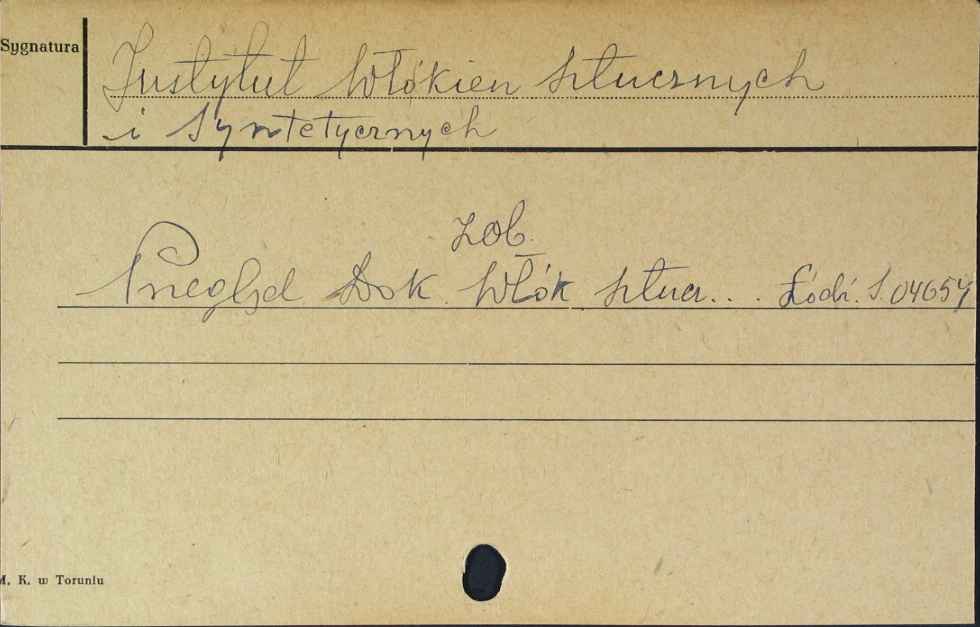 Sygnatura
Instytut Włókien Sztucznych
i Syntetycznych
zob.
Przegląd Dok. Włók Sztucz... Łódź. S. 04654
M. K. w Toruniu